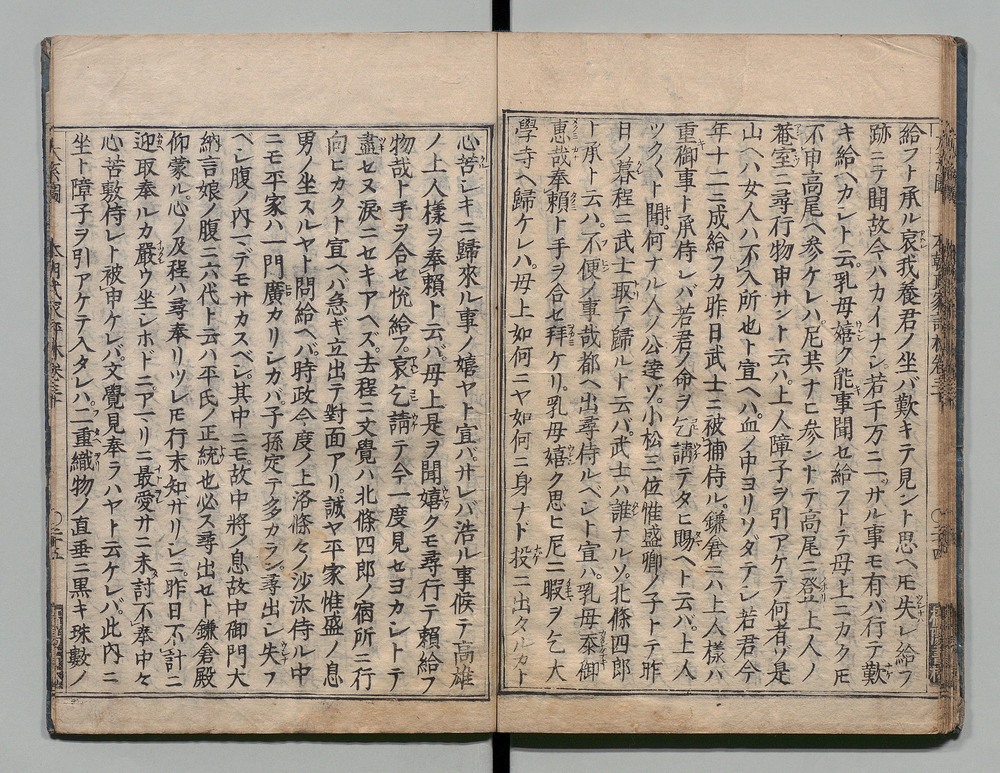 給フト承ル哀我養君ノ坐バ歎キテ見ント思ヘモ失レ給フ
跡ニラ聞故今ハカイナシ若千万ニ一サル事モ有バ行テ歎
キ給ヘカシト云乳母嬉ク能事聞セ給フトテ母上ニカクモ
不申高尾ヘ参ケレハ尼共ナヒ参ントテ高尾ニ登上人ノ
菴室ニ尋行物申サント云ハ上人障子ヲ引アケテ何者ソ是
山ヘハ女人ハ不入所也ト宣ヘハ血ノ中ヨリソダテシ若君今
年十二ニ成給フカ昨日武士ニ被捕侍ル鎌倉ニハ上人樣ハ
重御事ト承侍レバ若君ノ命ヲ乞請テタヒ賜ヘト云バ上人
ツク〱ト聞何ナル人ノ公達ゾ小松三位惟盛卿ノ子トテ昨
日ノ暮程ニ武士取テ歸ルト云バ武士ハ誰ナルソ北條四郎
ト承ト云ハ不便ノ事哉都ヘ出尋侍ルベシト宣ハ乳母忝御
惠哉奉頼ト手ヲ合セ拜ケリ乳母嬉ク思ヒ尼ニ暇ヲ乞大
學寺ヘ歸ケレハ母上如何ニヤ如何ニ身ナド投ニ出タルカト
心苦シキニ歸來ル事ノ嬉ヤト宣バサレバ浩ル事候テ高雄
ノ上人樣ヲ奉頼ト云バ母上是ヲ聞嬉クモ尋行テ頼給フ
物哉ト手ヲ合セ悦給フ哀乞請テ今一度見セヨカシトテ
盡セヌ涙ニセキアヘズ去程ニ文覺ハ北條四郎ノ宿所ニ行
向ヒカクト宣ヘバ急ギ立出テ對面アリ誠ヤ平家惟盛ノ息
男ノ坐スルヤト問給ヘバ時政今度ノ上洛條々ノ沙汰侍ル中
ニモ平家ハ一門廣カリシカバ子孫定テ多カラン尋出シ失フ
ベシ腹ノ内マデモサカスベシ其中ニモ故中將ノ息故中御門大
納言娘ノ腹ニ六代ト云ハ平氏ノ正統也必ス尋出セト鎌倉殿
仰蒙ル心ノ及程ハ尋奉リツレモ行末知ザリシニ昨日不計ニ
迎取奉ルカ嚴ウ坐シホドニアマリニ最愛サニ未討不奉中々
心苦敷侍レト被申ケレバ文覺見奉ラハヤト云ケレバ此内ニ
坐ト障子ヲ引アケテ入タレハ二重織物ノ直垂ニ黒キ珠數ノ